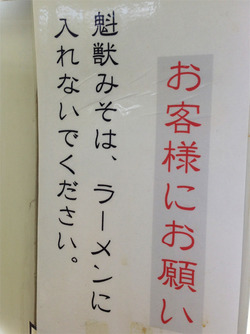 お客様にお願い
魁獣みそは、ラーメンに
入れないでください。